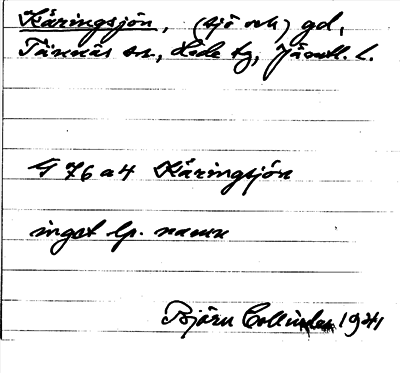 Käringsjön, (sjö och) gd,
Tännäs sn, Hede tg, Jämtl. l.
G 76 a 4 Käringsjön
inget lp. namn
Björn Collinder 1941